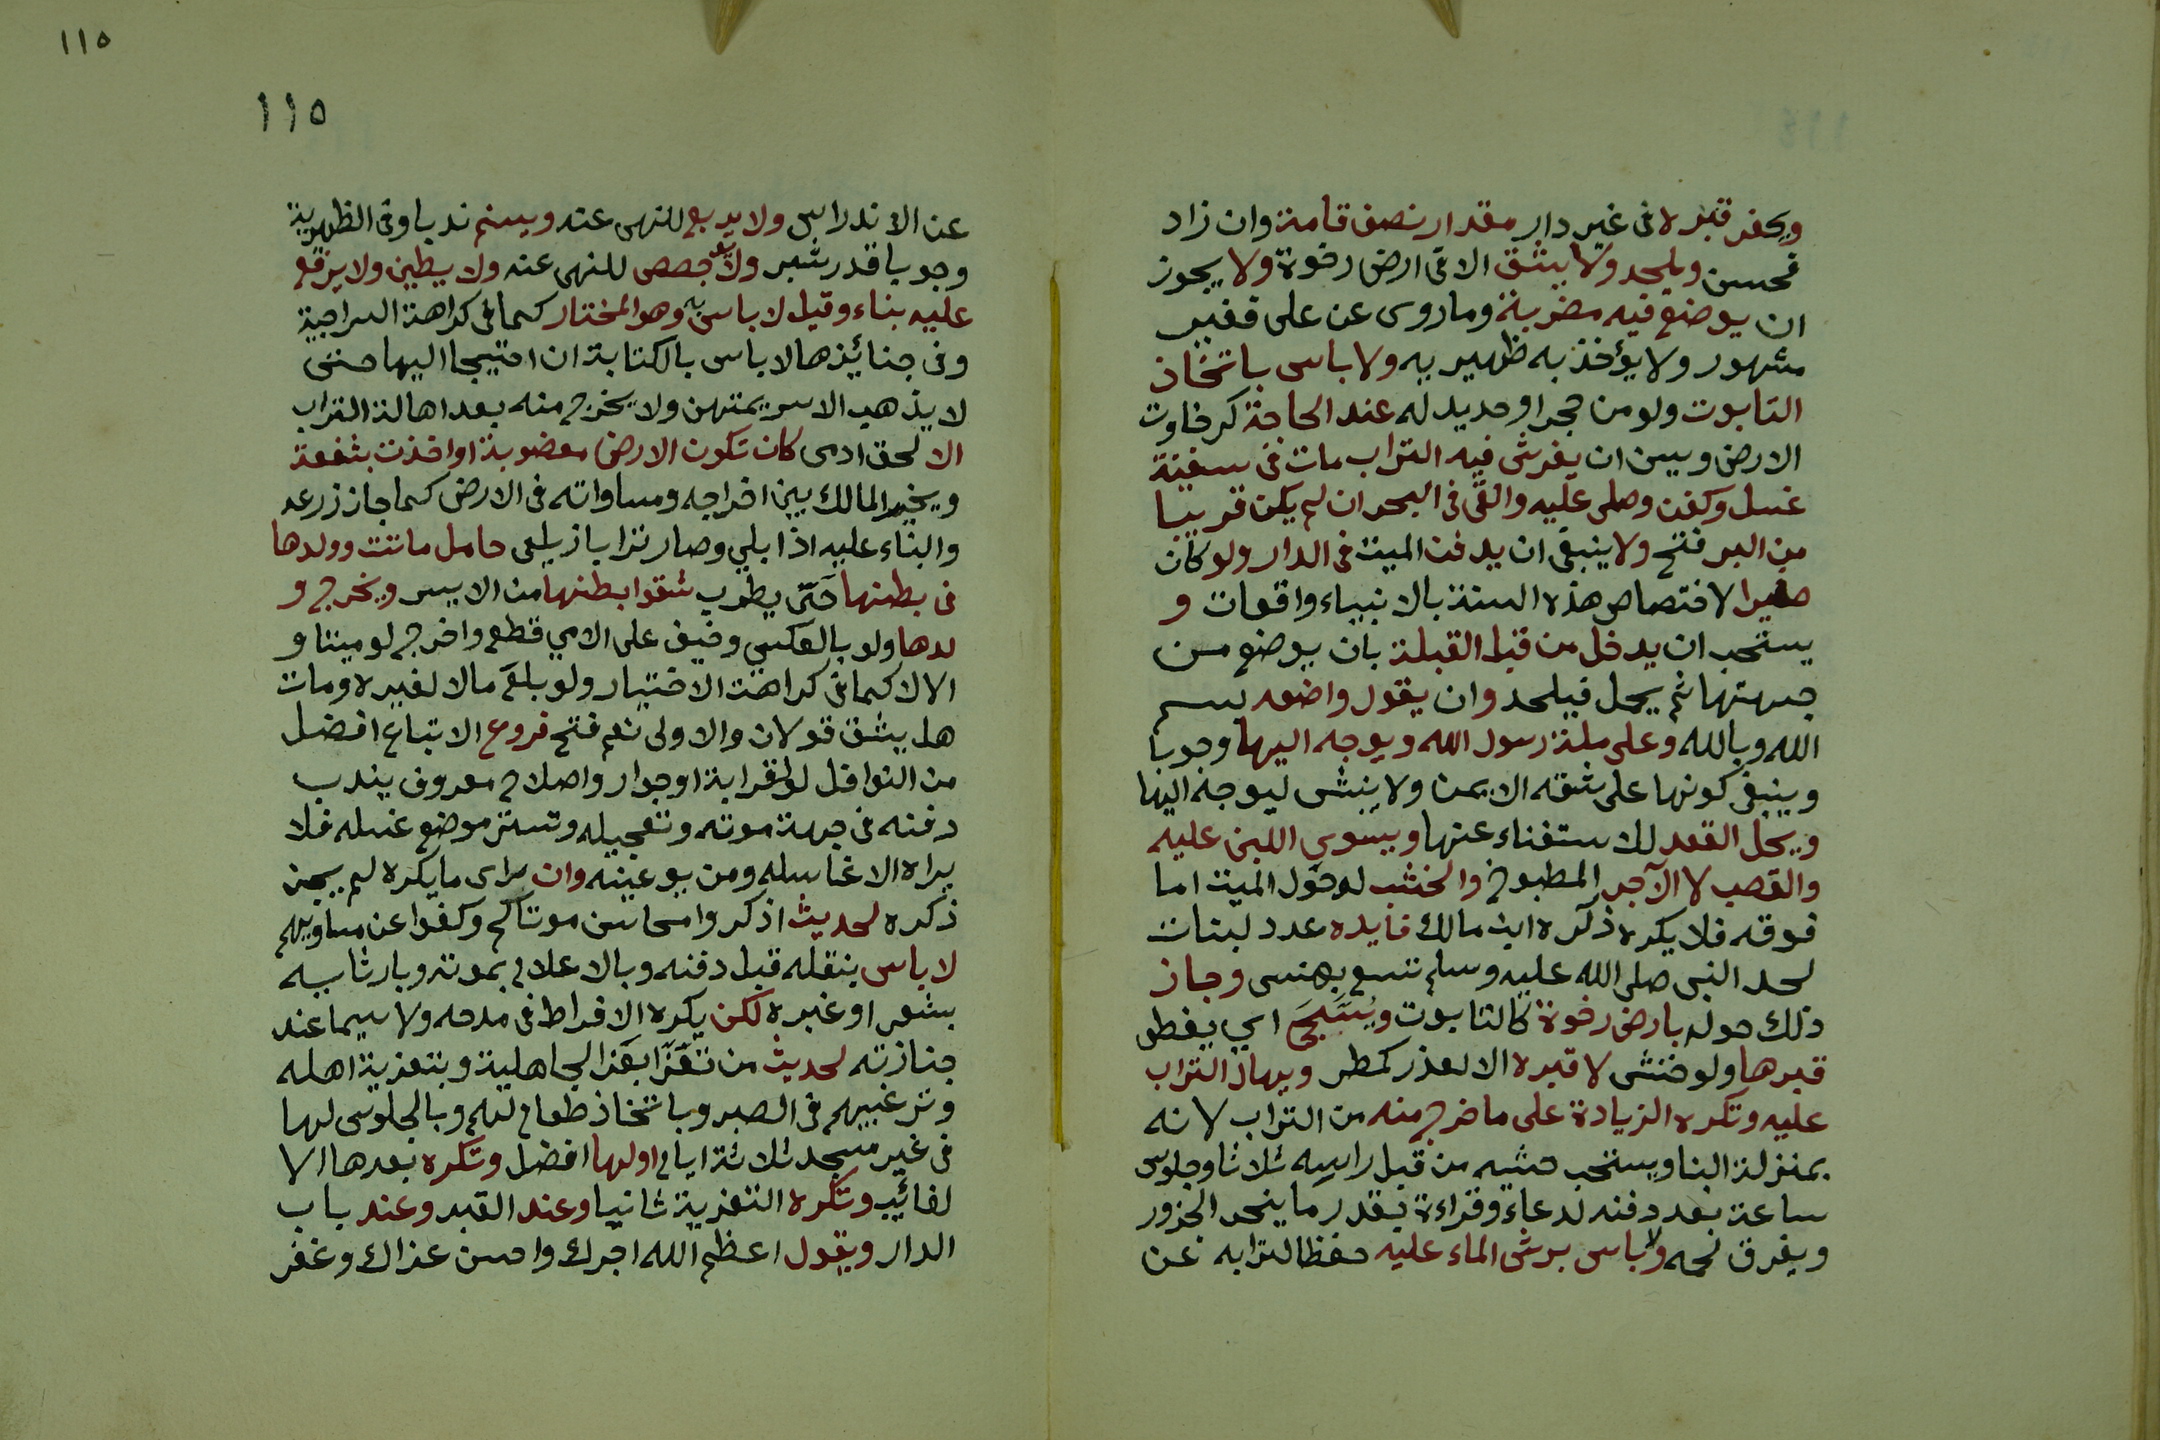 ويحفر قبره فى غير دار مقدار نصف قامة وان زاد
فحسن ويلحد ولا يشق الا فى ارض رخوة ولا يجوز
ان يوضع فيه مضربة وما روى عن على فغير
مشهور ولا يؤخذ به ظهيريه ولا باس باتخاذ
التابوت ولو من حجر او حديد له عند الحاجة كرخاوت
الارض ويسن ان يفرش فيه التراب مات فى سفينة
غسل وكفن وصلى عليه والقى فى البحر ان لم يكن قريبا
من البر فتح ولا ينبغى ان يدفن الميت فى الدار ولو كان
صغيرا لاختصاص هذه السنة بالانبياء واقعات و
يستحب ان يدخل من قبل القبلة بان يوضع من
جهتها ثم يحمل فيلحد وان يقول واضعه بسم
الله وبالله وعلى ملة رسول الله ويوجه اليها وجوبا
وينبغى كونها على شقه الايمن ولا ينبش ليوجه اليها
ويحل العقد للاستغناء عنها ويسوي اللبن عليه
والقصب لا الآجر المطبوخ والخشب لو حول الميت اما
فوقه فلا يكره ذكره ابن مالك فايده عدد لبنات
لحد النبى صلى الله عليه وسلم تسع بهنسى وجاز
ذلك حوله بارض رخوة كالتابوت ويسجى اي يغطى
قبرها ولو خنثى لا قبره الا لعذر كمطر ويهال التراب
عليه وتكره الزيادة على ما خرج منه من التراب لانه
بمنزلة البنا ويستحب حثيه من قبل راسه ثلاثا وجلوس
ساعة بعد دفنه لدعاء وقراءة بقدر ما ينحر الجزور
ويفرق لحمه ولا باس برش الماء عليه حفظا لترابه عن
١١٥
١١٥
عن الاندراس ولا يربع للنهى عنه ويسنم ندبا وفى الظهيرية
وجوبا قدر شبر ولا يجصص للنهى عنه ولا يطين ولا يرفع
عليه بناء وقيل لا باس به وهو المختار كما فى كراهة السراجية
وفى جنائزها لا باس بالكتابة ان احتيجا اليها حتى
لا يذهب الاسر يمتهن ولا يخرج منه بعد اهالة التراب
الا لحق ادمى كان تكون الارض مغصوبة او اخذت بشفعة
ويخير المالك بين اخراجه ومساواته فى الارض كما جاز زرعه
والبناء عليه اذا بلي وصار ترابا زيلعى حامل ماتت وولدها
فى بطنها حتى يطرب شقوا بطنها من الايسر ويخرج و
لدها ولو بالعكس وخيف على الامي قطع واخرج لو ميتا و
الا لا كما فى كراهت الاختيار ولو بلع مالا لغيره ومات
هل يشق قولان والاولى نعم فتح فروع الاتباع افضل
من النوافل لو لقرابة او جوار واصلاح معروف يندب
دفنه فى جهة موته وتعجيله وتستر موضع غسله فلا
يراه الا غاسله ومن بوعينه وان راى ما يكره لم يجز
ذكره لحديث اذكروا محاسن موتاكم وكفوا عن مساويهم
لا باس بنقله قبل دفنه وبالاعلام بموته وبارثايه
بشعر او غيره لكن يكره الافراط فى مدحه ولا سيما عند
جنازته لحديث من تعزا بعزا الجاهلية وبتعزية اهله
وترغيبهم فى الصبر وباتخاذ طعام لهم وبالجلوس لها
فى غير مسجد ثلاثة ايام اولها افضل وتكره بعدها الا
لغائب وتكره التعزية ثانيا وعند القبر وعند باب
الدار ويقول اعظم الله اجرك واحسن عزاك وغفر